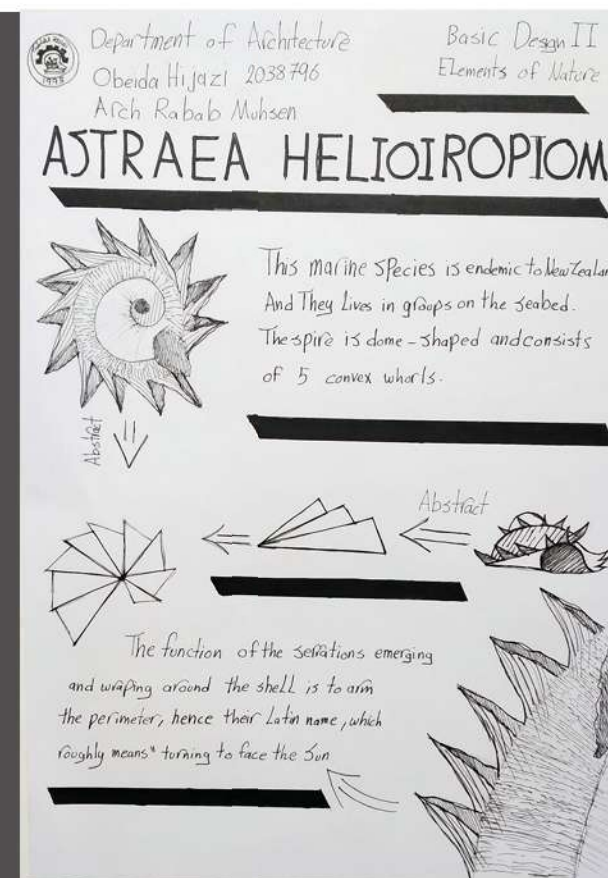 Department of Architecture
Obeida Hijazi 2038796
Arch Rabab Muhsen
Basic Design II
Elements of Nature
ASTRAEA HELIOIROPIOM
This marine species is endemic to New Zealan
And They Lives in groups on the seabed.
The spire is dome-shaped and consists
of 5 convex whorls.
Abstract
Abstract
The function of the serrations emerging
and wraping around the shell is to arm
the perimeter, hence their Latin name, which
roughly means" turning to face the Sun
1995